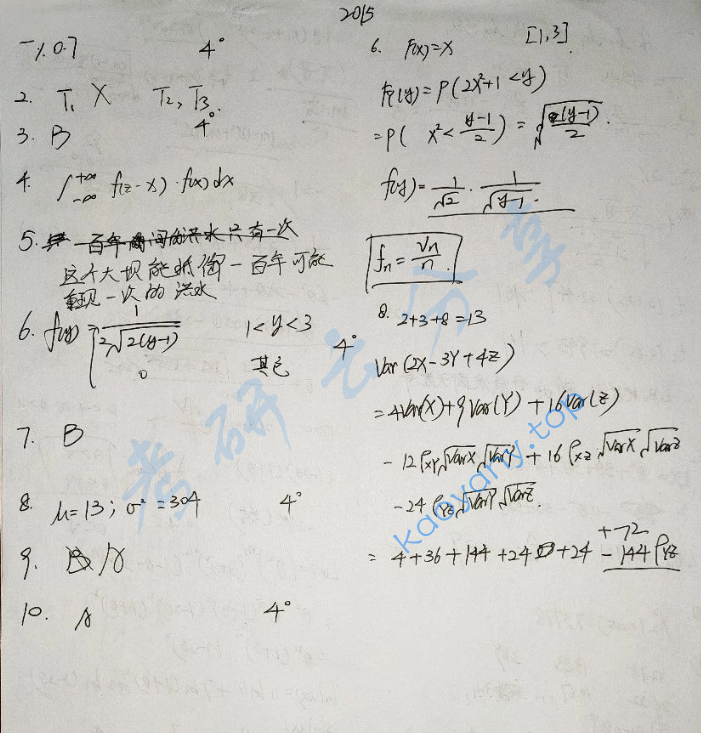 2015
一、1. 0.7 4°
2. T₁ X T₂, T₃.
3. B 4°
4. ∫₋∞^{+∞} f(z-x)·f(x)dx
5. 一百年间的洪水只有一次
这个大坝能抵御一百年可能
重现一次的洪水
6. f(y) = { 1/(2√(2(y-1))) 1<y<3
0 其它 4°
7. B
8. μ=13; σ²=304 4°
9. B/
10. A 4°
6. F(x)=x [1,3].
F(y)=P(2x²+1<y)
=P(x²<(y-1)/2)=√((y-1)/2).
f(y)=1/√2 · 1/√(y-1).
fₙ = Vₙ/n.
8. 2+3+8=13
Var(2X-3Y+4Z)
=4Var(X)+9Var(Y)+16Var(Z)
-12ρXY√VarX√VarY+16ρXZ√VarX√VarZ
-24ρYZ√VarY√VarZ.
+72
=4+36+144+24+24-144ρYZ
考研云分享
kaoyany.top